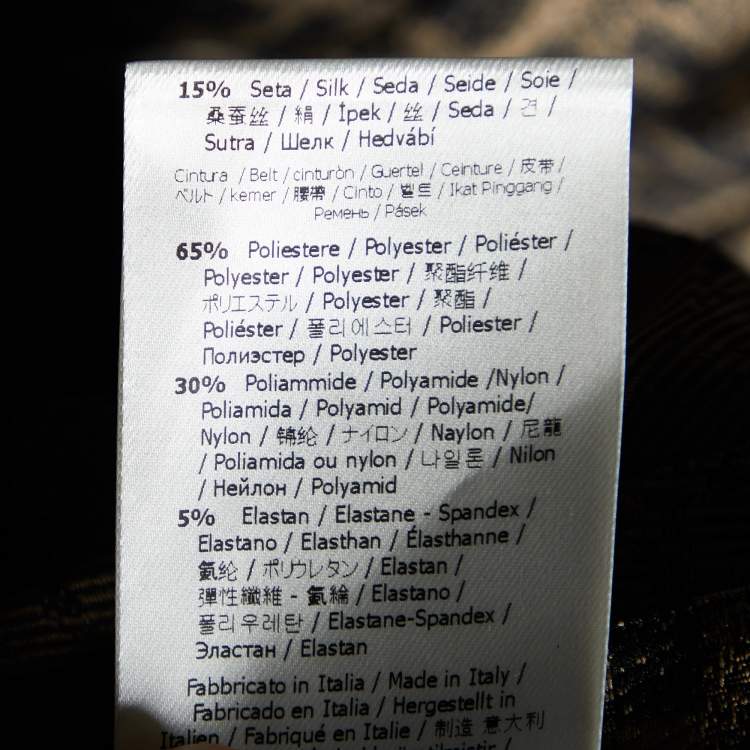 15% Seta / Silk / Seda / Seide / Soie /
桑蚕丝 / 絹 / İpek / 丝 / Seda / 견 /
Sutra / Шелк / Hedvábí
Cintura / Belt / cinturòn / Guertel / Ceinture / 皮带 /
ベルト / kemer / 腰帶 / Cinto / 벨트 / Ikat Pinggang /
Ремень / Pásek
65% Poliestere / Polyester / Poliéster /
Polyester / Polyester / 聚酯纤维 /
ポリエステル / Polyester / 聚酯 /
Poliéster / 폴리에스터 / Poliester /
Полиэстер / Polyester
30% Poliammide / Polyamide /Nylon /
Poliamida / Polyamid / Polyamide/
Nylon / 锦纶 / ナイロン / Naylon / 尼龍
/ Poliamida ou nylon / 나일론 / Nilon
/ Нейлон / Polyamid
5% Elastan / Elastane - Spandex /
Elastano / Elasthan / Élasthanne /
氨纶 / ポリウレタン / Elastan /
彈性纖維 - 氨綸 / Elastano /
폴리우레탄 / Elastane-Spandex /
Эластан / Elastan
Fabbricato in Italia / Made in Italy /
Fabricado en Italia / Hergestellt in
Italien / Fabriqué en Italie / 制造 意大利